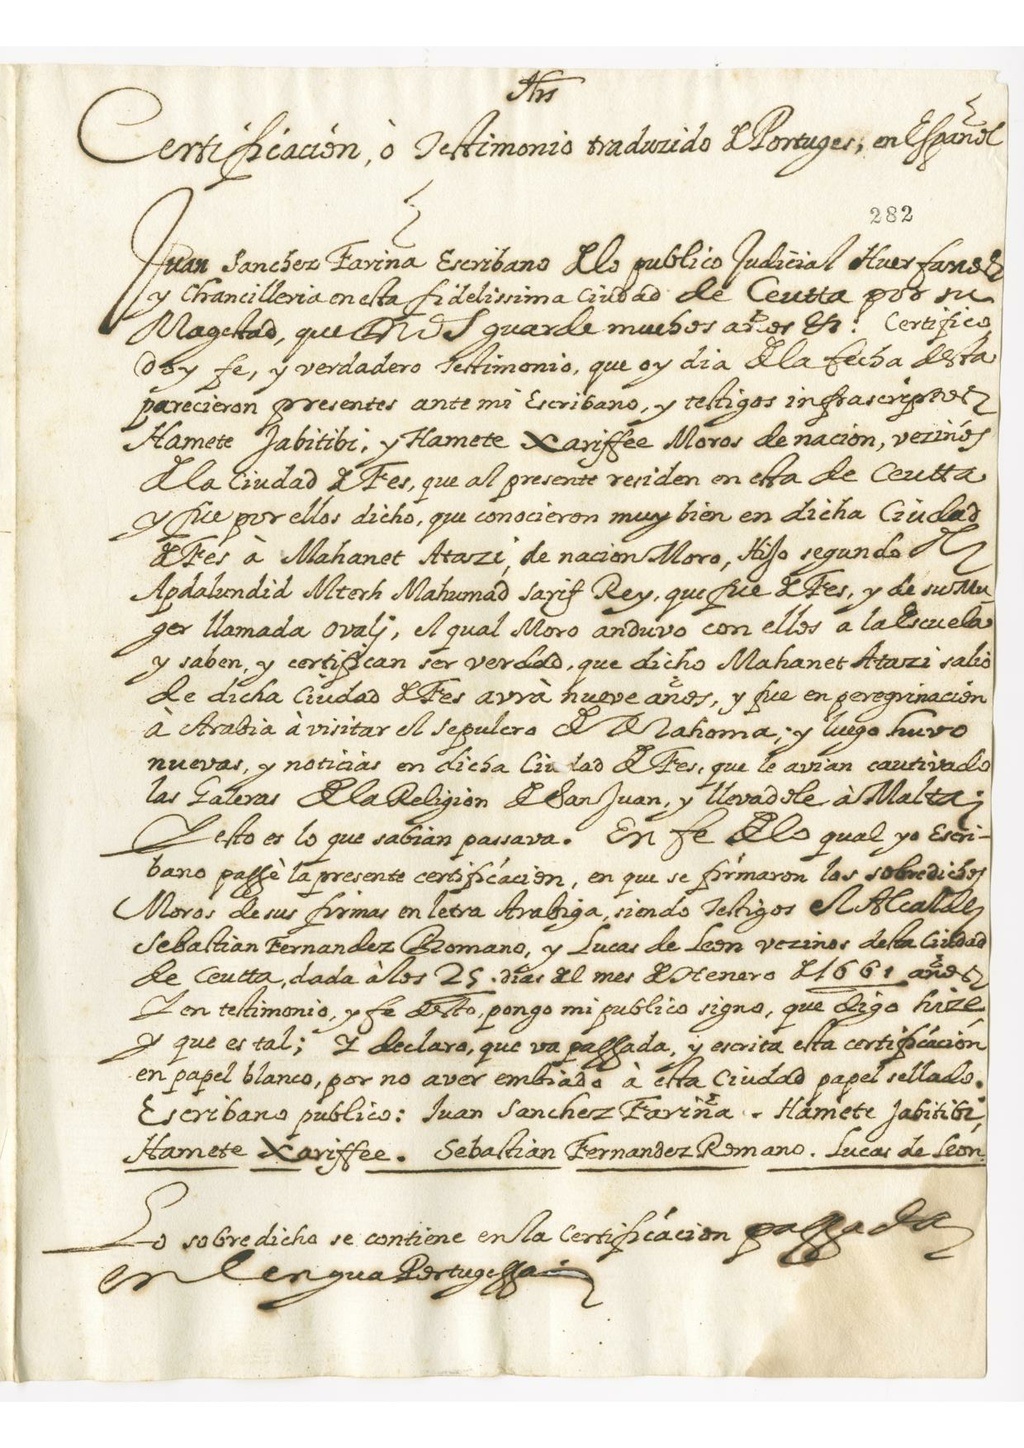 Jhs
Certificación, ò Testimonio traduzido de Portuges, en Español
282
Juan Sanchez Farina Escribano de lo publico Judicial Huerfanos
y Chancilleria en esta fidelissima Ciudad de Ceutta por su
Magestad, que Dios guarde muchos años &c: Certifico
doy fe, y verdadero Testimonio, que oy dia de la fecha desta
parecieron presentes ante mi Escribano, y testigos infrascriptos
Hamete Jabitibi, y Hamete Xariffee Moros de nación, vezinos
de la Ciudad de Fes, que al presente residen en esta de Ceutta
y fue por ellos dicho, que conocieron muy bien en dicha Ciudad
de Fes à Mahanet Atazi, de nacion Moro, Hijo segundo de
Apdalundid Mterh Mahumad Sarif Rey, que fue de Fes, y de su Mu
ger llamada Ovalj, el qual Moro anduvo con ellos a la Escuela
y saben, y certifican ser verdad, que dicho Mahanet Atazi saliò
de dicha Ciudad de Fes avrà nueve años, y fue en peregrinación
à Arabia à visitar el sepulcro de Mahoma; y luego huvo
nuevas, y noticias en dicha Ciudad de Fes, que le avian cautivado
las Galeras de la Religion de San Juan, y llevadole à Malta;
Y esto es lo que sabian passava. En fe de lo qual yo Escri-
bano passè la presente certificación, en que se firmaron los sobredichos
Moros de sus firmas en letra Arabiga, siendo Testigos el Alcalde
Sebastian Fernandez Romano, y Lucas de Leon vezinos desta Ciudad
de Ceutta, dada à los 25. dias del mes de Henero de 1661 años
Y en testimonio, y fe desto, pongo mi publico signo, que digo hize
y que es tal; Y declaro, que va passada, y escrita esta certificación
en papel blanco, por no aver embiado à esta Ciudad papel sellado.
Escribano publico: Juan Sanchez Fariña. Hamete Jabitibi,
Hamete Xariffee. Sebastian Fernandez Romano. Lucas de Leon.
Lo sobredicho se contiene en la Certificacion passada
en lengua Portugessa.